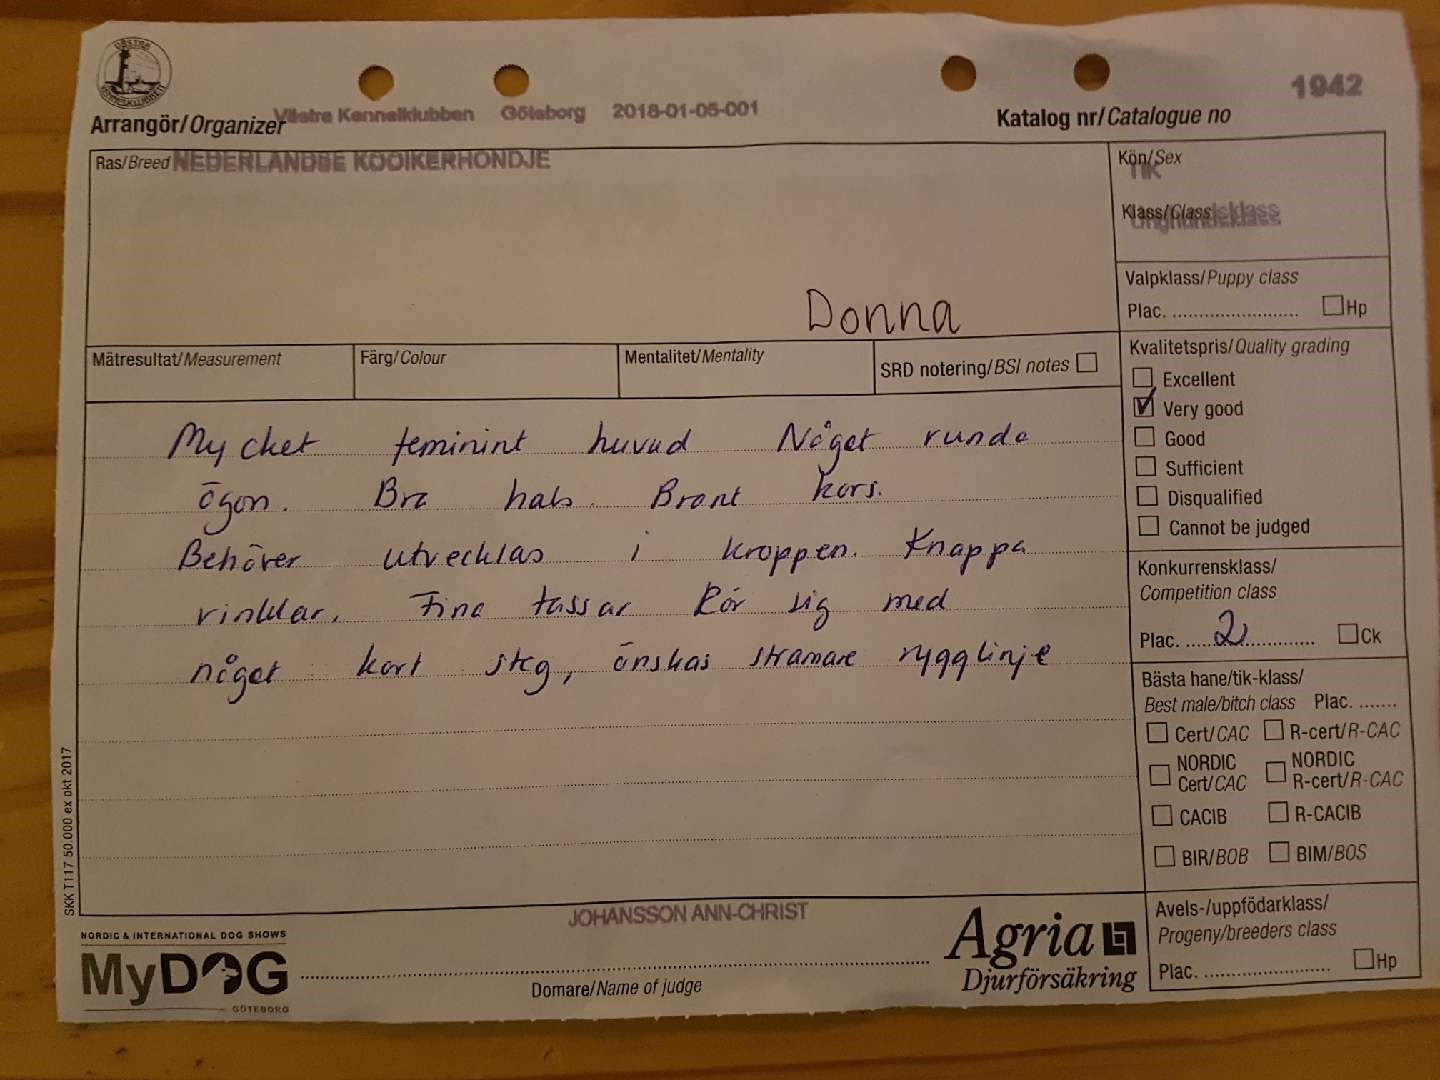 VÄSTRA KENNELKLUBBEN
Arrangör/Organizer Västra Kennelklubben Göteborg 2018-01-05-001
Katalog nr/Catalogue no 1942
Ras/Breed NEDERLANDSE KOOIKERHONDJE
Kön/Sex
TIK
Klass/Class
Unghundsklass
Donna
Valpklass/Puppy class
Plac. ........................ Hp
Mätresultat/Measurement
Färg/Colour
Mentalitet/Mentality
SRD notering/BSI notes
Kvalitetspris/Quality grading
Excellent
Very good
Good
Sufficient
Disqualified
Cannot be judged
Mycket feminint huvud Något runda
ögon. Bra hals. Brant kors.
Behöver utvecklas i kroppen. Knappa
vinklar. Fina tassar Rör sig med
något kort steg, önskas stramare rygglinje
Konkurrensklass/
Competition class
Plac. 2 Ck
Bästa hane/tik-klass/
Best male/bitch class Plac. .......
Cert/CAC R-cert/R-CAC
NORDIC Cert/CAC NORDIC R-cert/R-CAC
CACIB R-CACIB
BIR/BOB BIM/BOS
Avels-/uppfödarklass/
Progeny/breeders class
Plac. ........................ Hp
SKK T117 50.000 ex okt 2017
JOHANSSON ANN-CHRIST
Domare/Name of judge
NORDIC & INTERNATIONAL DOG SHOWS
MyDOG
GÖTEBORG
Agria
Djurförsäkring